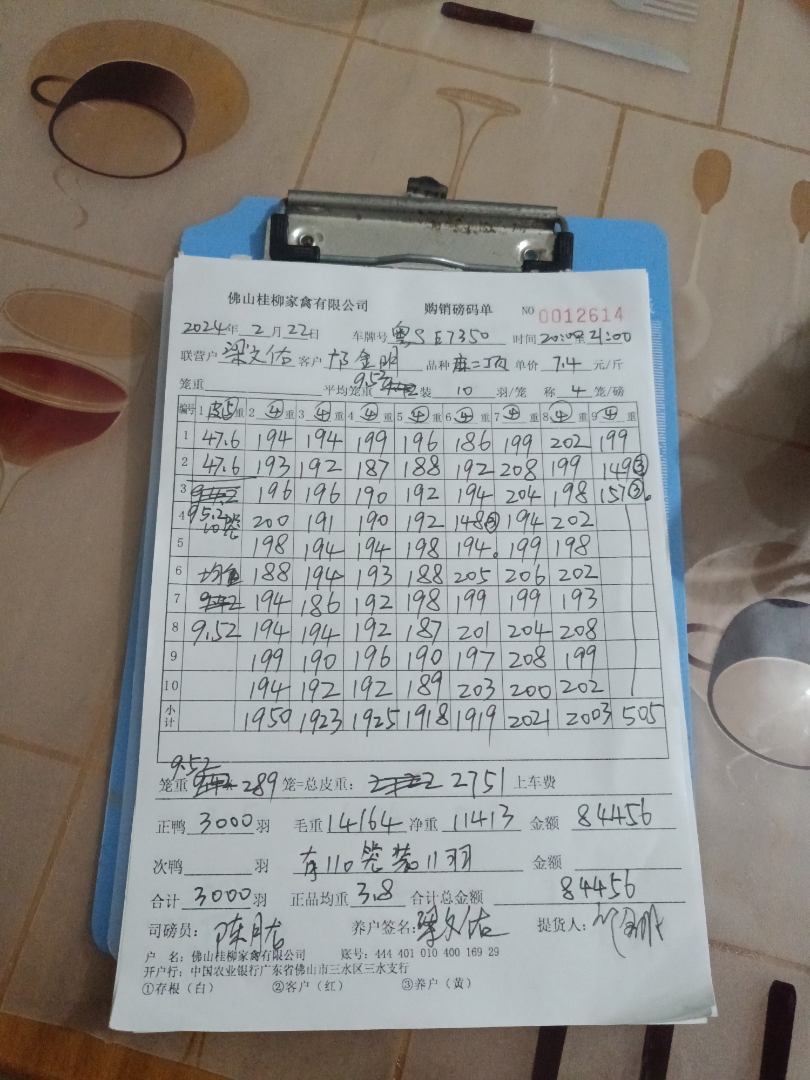 佛山桂柳家禽有限公司 购销磅码单 NO 0012614
2024年 2 月 22日 车牌号 粤S E7350 时间 20:00至21:00
联营户 梁文佑 客户 金明 品种 二 单价 7.4 元/斤
笼重 平均笼重 9.52 装 10 羽/笼 称 4 笼/磅
编号 1 皮⑤重 2 ④重 3 ④重 4 ④重 5 ④重 6 ④重 7 ④重 8 ④重 9 ④重
1 47.6 194 194 199 196 186 199 202 199
2 47.6 193 192 187 188 192 208 199 149③
3 196 196 190 192 194 204 198 157③.
4 95.2 10笼 200 191 190 192 148③ 194 202
5 198 194 194 198 194. 199 198
6 均重 188 194 193 188 205 206 202
7 194 186 192 198 199 199 193
8 9.52 194 194 192 187 201 204 208
9 199 190 196 190 197 208 199
10 194 192 192 189 203 200 202
小计 1950 1923 1925 1918 1919 2021 2003 505
笼重 9.52 289 笼=总皮重: 2751 上车费
正鸭 3000 羽 毛重 14164 净重 11413 金额 84456
次鸭 羽 有110笼装11羽 金额
合计 3000 羽 正品均重 3.8 合计总金额 84456
司磅员: 陈月 养户签名: 梁文佑 提货人:
户 名: 佛山桂柳家禽有限公司 账号: 444 401 010 400 169 29
开户行: 中国农业银行广东省佛山市三水区三水支行
①存根(白) ②客户(红) ③养户(黄)